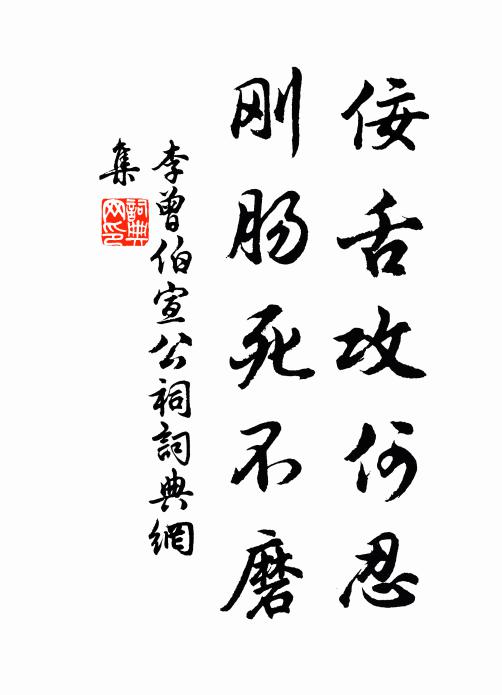 佞舌攻何忍
刚肠死不磨
李曾伯宣公祠詞典網
集
詞典网印